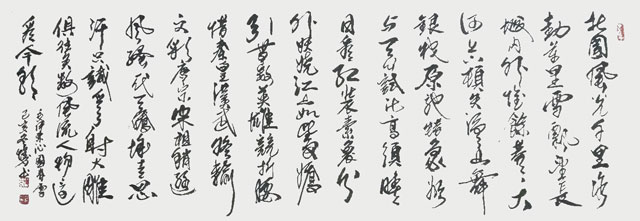 北國風光千里冰
封萬里雪飄望長
城內外惟餘莽莽大
河上下頓失滔滔山舞
銀蛇原馳蠟象欲
與天公試比高須晴
日看紅裝素裹分
外妖嬈江山如此多嬌
引無數英雄競折腰
惜秦皇漢武略輸
文彩唐宗宋祖稍遜
風騷一代天驕成吉思
汗只識彎弓射大雕
俱往矣數風流人物還
看今朝
毛澤東沁園春雪
己亥